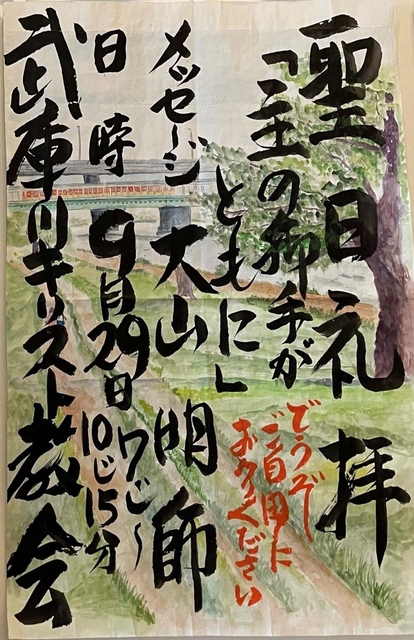 聖日礼拝
「主の御手が
ともに」
どうぞ
ご自由に
ください
メッセージ 大山 明師
日時 9月29日 7じ〜
10じ15分
武庫川キリスト教会